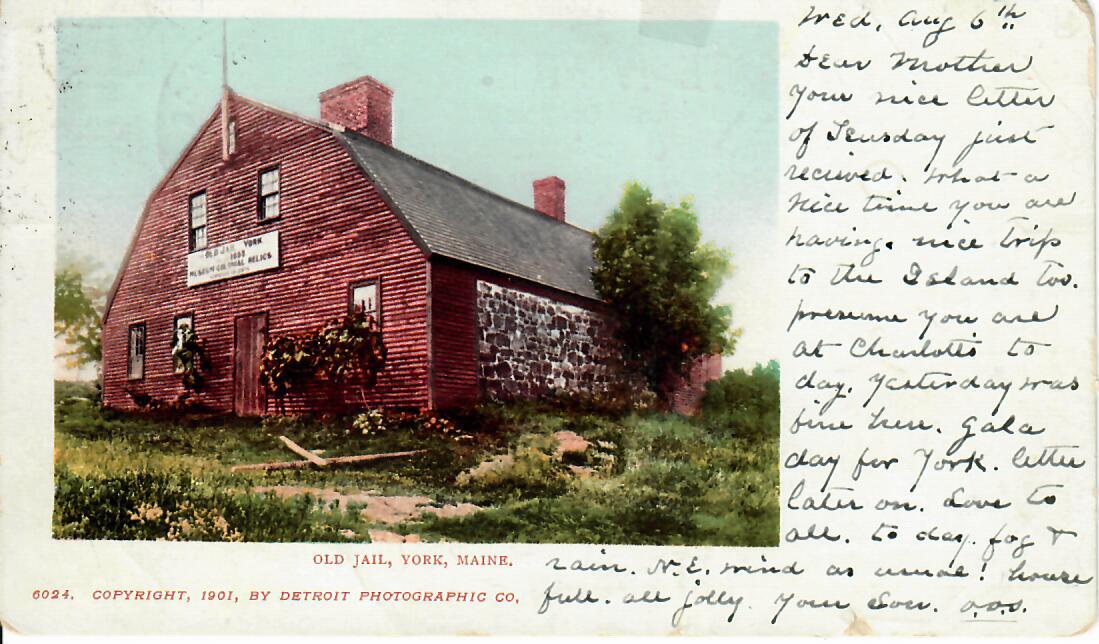 Wed, Aug 6th
Dear Mother
Your nice letter
of Teusday just
recieved. What a
nice time you are
having. nice trip
to the Island too.
presume you are
at Charlotts to
day. Yasterday was
fine here. Gala
day for York. letter
later on. Love to
all. to day. fog &
rain. N.E. wind as usual! house
full. all jolly. Your Son.
OLD JAIL YORK
MUSEUM COLONIAL RELICS
OLD JAIL, YORK, MAINE.
6024. COPYRIGHT, 1901, BY DETROIT PHOTOGRAPHIC CO.